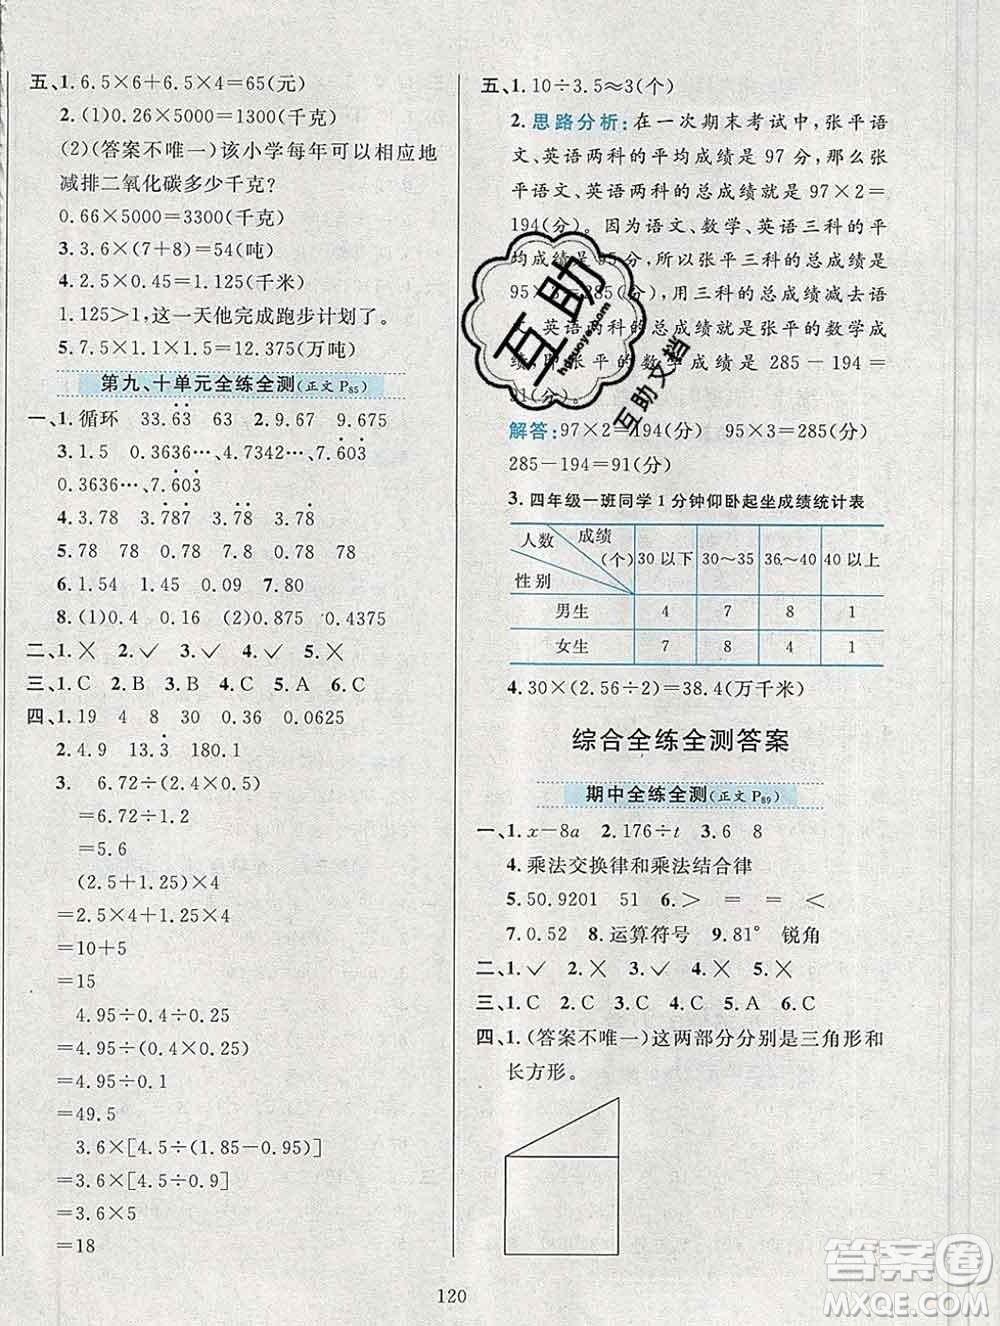 五、1. 6.5×6+6.5×4=65(元)
2. (1)0.26×5000=1300(千克)
(2)(答案不唯一)该小学每年可以相应地
减排二氧化碳多少千克?
0.66×5000=3300(千克)
3. 3.6×(7+8)=54(吨)
4. 2.25÷2=1.125(千米)
1.125>1,这一天他完成跑步计划了。
5. 7.5×1.1×1.5=12.375(万吨)
第九、十单元全练全测(正文 P85)
一、1. 循环 33.6̇3̇ 63 2. 9.67 9.675
3. 1.5 0.3636…、4.7342…、7.6̇03̇
0.3636…、7.6̇03̇
4. 3.78 3.7̇87̇ 3.78 3.7̇8̇ 3.78̇
5. 78 78 0.78 0.78 78
6. 1.54 1.45 0.09 7. 80
8. (1)0.4 0.16 (2)0.875 0.0875
二、1. ✕ 2. ✓ 3. ✓ 4. ✓ 5. ✕
三、1. C 2. B 3. B 4. C 5. A 6. C
四、1. 19 4 8 30 0.36 0.0625
2. 4.9 13.3̇ 180.1
3. 6.72÷(2.4×0.5)
=6.72÷1.2
=5.6
(2.5+1.25)×4
=2.5×4+1.25×4
=10+5
=15
4.95÷0.4÷0.25
=4.95÷(0.4×0.25)
=4.95÷0.1
=49.5
3.6×[4.5÷(1.85-0.95)]
=3.6×[4.5÷0.9]
=3.6×5
=18
五、1. 10÷3.5≈3(个)
2. 思路分析:在一次期末考试中,张平语
文、英语两科的平均成绩是 97 分,那么张
平语文、英语两科的总成绩就是 97×2=
194(分)。因为语文、数学、英语三科的平
均成绩是 95 分,所以张平三科的总成绩是
95×3=285(分),用三科的总成绩减去语
文、英语的总成绩就是张平的数学成
绩,张平的数学成绩是 285-194=
91(分)
解答:97×2=194(分) 95×3=285(分)
285-194=91(分)
3. 四年级一班同学 1 分钟仰卧起坐成绩统计表
人数 成绩(个) 性别 30 以下 30~35 36~40 40 以上
男生 4 7 8 1
女生 7 8 4 1
4. 30×(2.56÷2)=38.4(万千米)
综合全练全测答案
期中全练全测(正文 P89)
一、1. x-8a 2. 176÷t 3. 6 8
4. 乘法交换律和乘法结合律
5. 50.9201 51 6. > = = <
7. 0.52 8. 运算符号 9. 81° 锐角
二、1. ✓ 2. ✕ 3. ✕ 4. ✓ 5. ✕
三、1. C 2. C 3. C 4. C 5. A 6. C
四、1. (答案不唯一)这两部分分别是三角形和
长方形。
120
互助
互助文档
答案圈
MXQE.COM